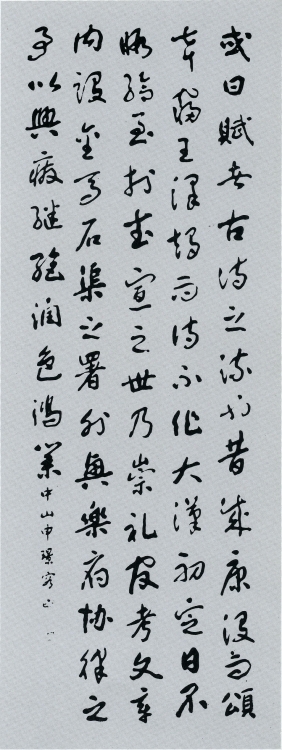 或曰賦者古詩之流也昔成康沒而頌
声寢王澤竭而詩不作大漢初定日不
暇給至於武宣之世乃崇礼官考文章
內設金馬石渠之署外興樂府協律之
事以興廢继絕潤色鴻業 中山申